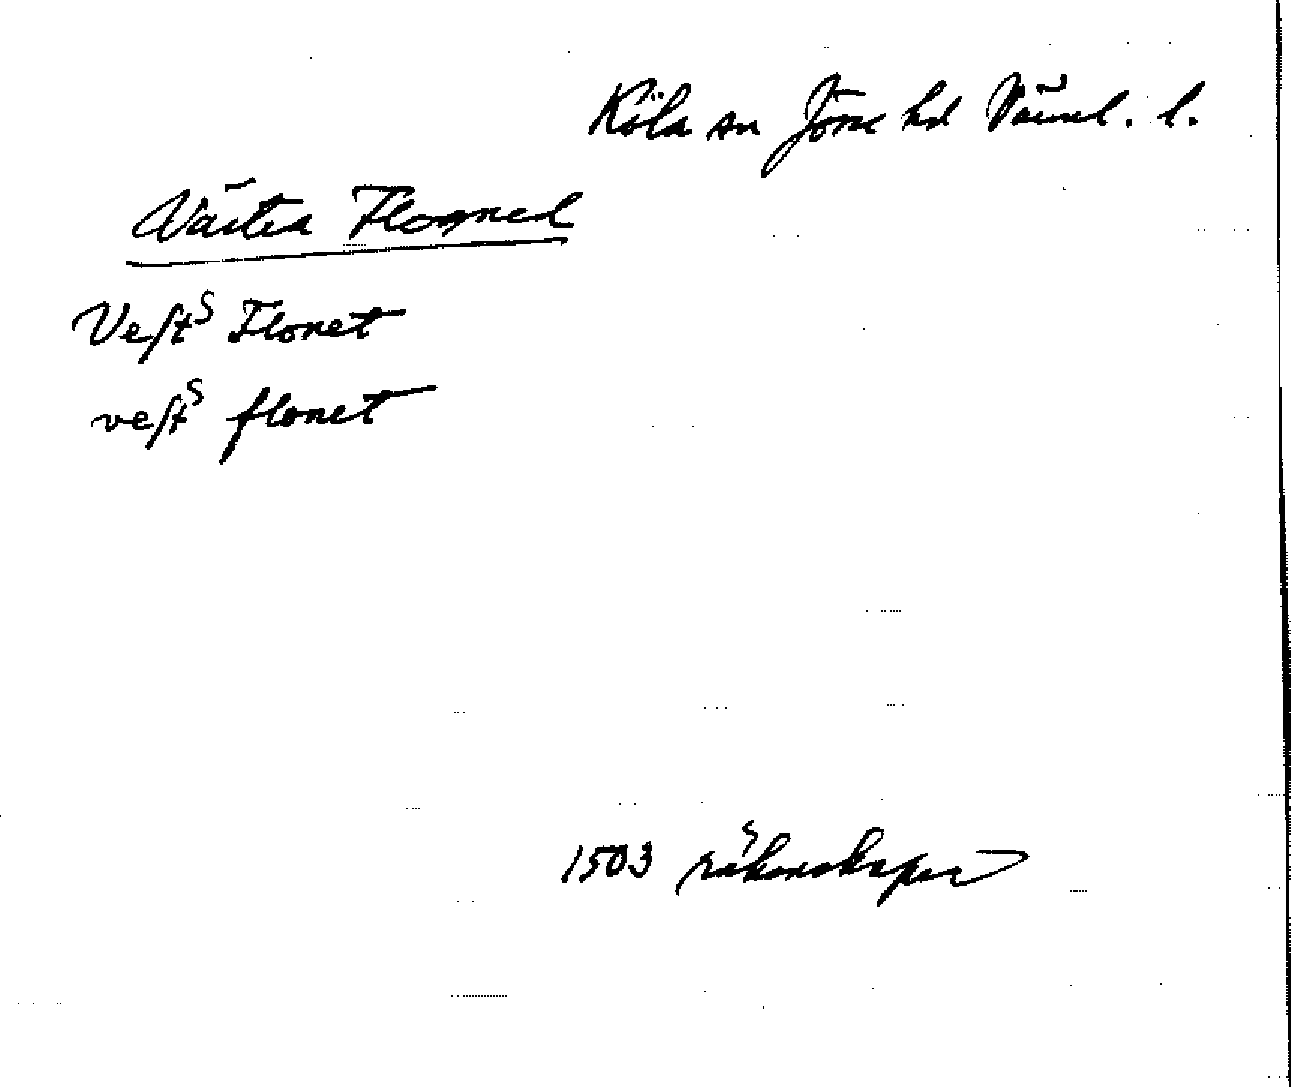 Köla sn Jösse hd Värml. l.
Västra Flogned
Veſtˢ Flonet
veſtˢ flonet
1503 räkenskaper